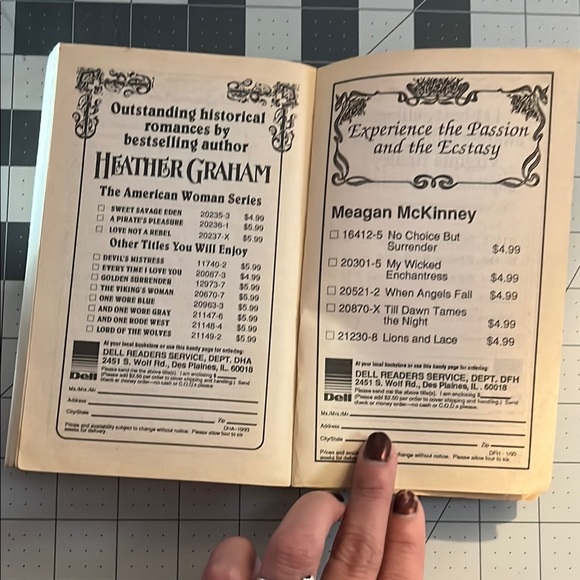 Outstanding historical
romances by
bestselling author
HEATHER GRAHAM
The American Woman Series
☐ SWEET SAVAGE EDEN 20235-3 $4.99
☐ A PIRATE'S PLEASURE 20236-1 $5.99
☐ LOVE NOT A REBEL 20237-X $5.99
Other Titles You Will Enjoy
☐ DEVIL'S MISTRESS 11740-2 $5.99
☐ EVERY TIME I LOVE YOU 20087-3 $4.99
☐ GOLDEN SURRENDER 12973-7 $5.99
☐ THE VIKING'S WOMAN 20670-7 $5.99
☐ ONE WORE BLUE 20963-3 $5.99
☐ AND ONE WORE GRAY 21147-6 $5.99
☐ AND ONE RODE WEST 21148-4 $5.99
☐ LORD OF THE WOLVES 21149-2 $5.99
At your local bookstore or use this handy page for ordering:
DELL READERS SERVICE, DEPT. DHA
2451 S. Wolf Rd., Des Plaines, IL. 60018
Please send me the above title(s). I am enclosing $
(Please add $2.50 per order to cover shipping and handling.) Send
check or money order—no cash or C.O.D.s please.
Dell
Ms./Mrs./Mr.
Address
City/State Zip
DHA-10/93
Prices and availability subject to change without notice. Please allow four to six
weeks for delivery.
Experience the Passion
and the Ecstasy
Meagan McKinney
☐ 16412-5 No Choice But
Surrender $4.99
☐ 20301-5 My Wicked
Enchantress $4.99
☐ 20521-2 When Angels Fall $4.99
☐ 20870-X Till Dawn Tames
the Night $4.99
☐ 21230-8 Lions and Lace $4.99
At your local bookstore or use this handy page for ordering:
DELL READERS SERVICE, DEPT. DFH
2451 S. Wolf Rd., Des Plaines, IL. 60018
Please send me the above title(s). I am enclosing $
(Please add $2.50 per order to cover shipping and handling.) Send
check or money order—no cash or C.O.D.s please.
Dell
Ms./Mrs./Mr.
Address
City/State Zip
Prices and change without notice. Please allow four to six
weeks for